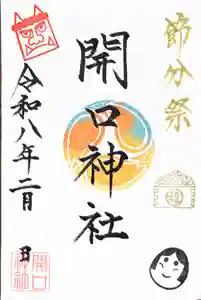 節分祭
開口神社
令和八年二月 日
開口神社